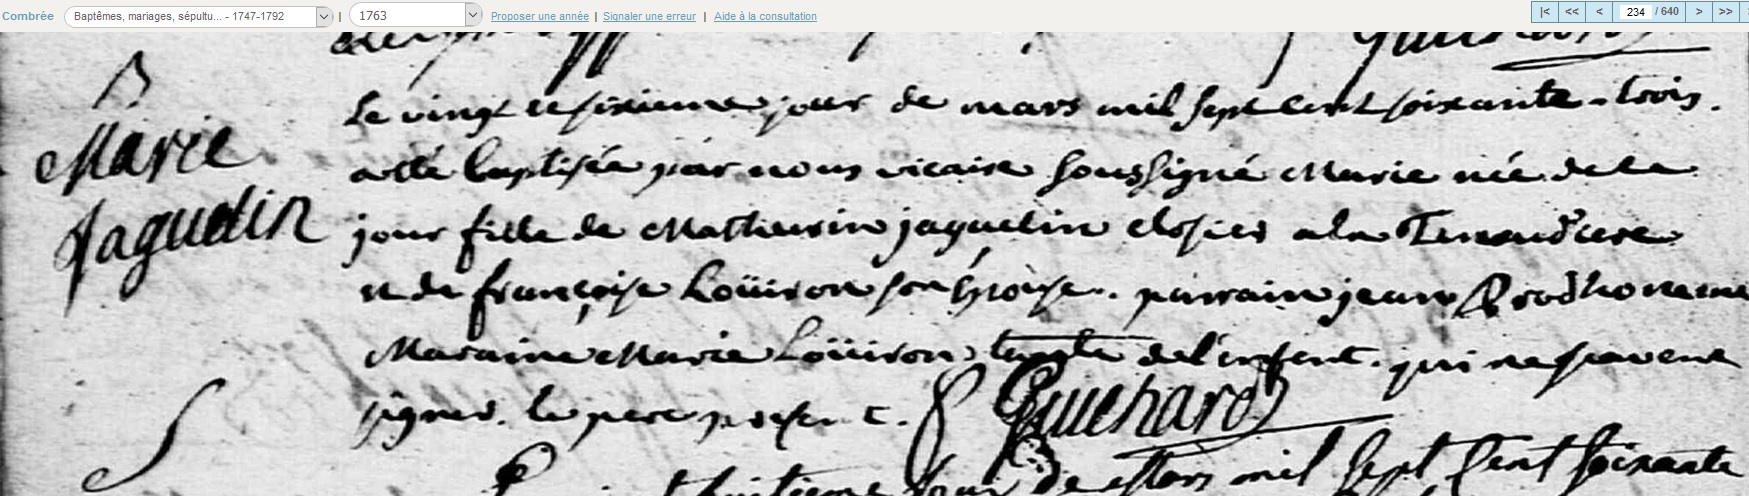 Combrée Baptêmes, mariages, sépultu... - 1747-1792 | 1763 Proposer une année | Signaler une erreur | Aide à la consultation |< << < 234 / 640 > >>
B
Marie
Jaguelin
Le vingt et sixieme jour de mars mil sept cent soixante-trois.
a été baptisée par nous vicaire soussigné Marie née de ce
jour fille de Mathurin jaguelin closier a la
et de françoise Loüiron son épouse. parrain jean Prodhomme
Maraine Marie Loüiron tante de l'enfent. qui ne scavent
signer. le pere present. Guichard
huitieme jour de Mars mil sept Cent soixante